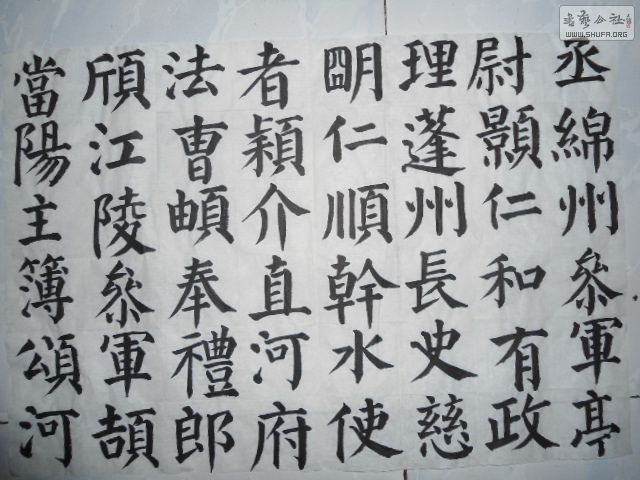 丞綿州叅軍亭
尉顥仁和有政
理蓬州長史慈
朙仁順幹水使
者穎介直河府
法曹頔奉禮郎
頎江陵叅軍頡
當陽主簿頌河
書藝公社
WWW.SHUFA.ORG